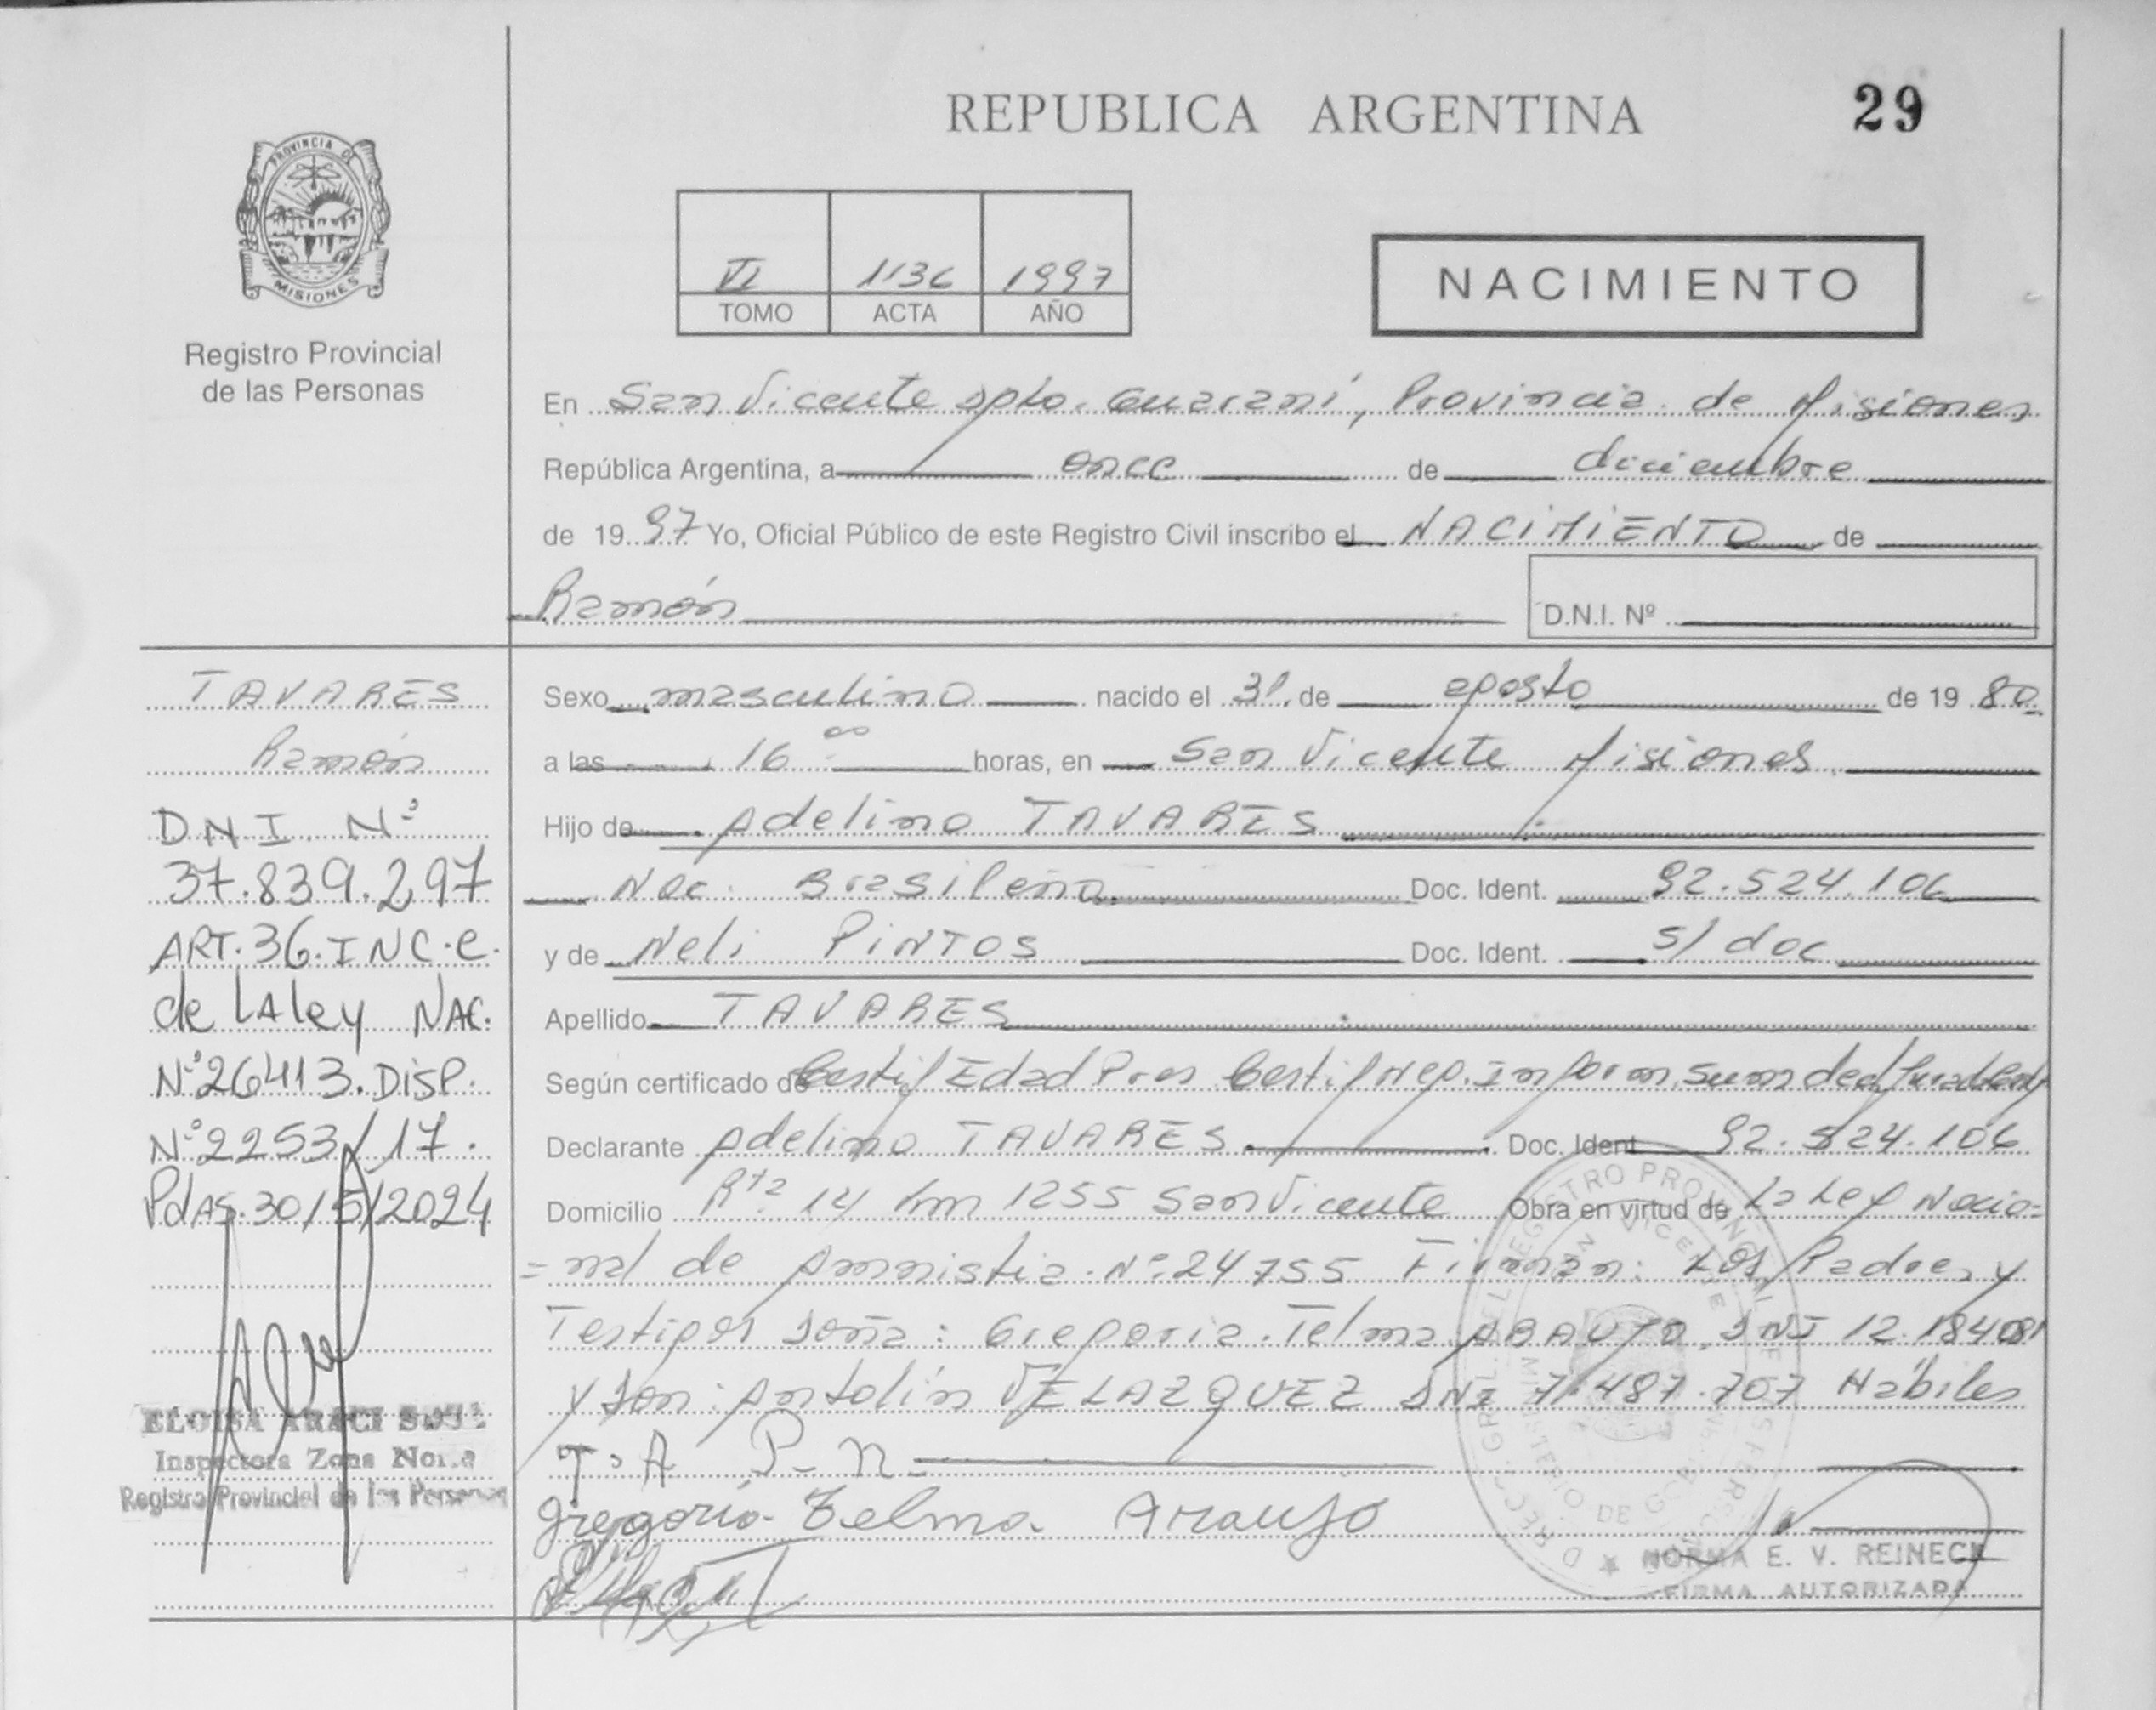 REPUBLICA ARGENTINA
29
PROVINCIA DE
MISIONES
Registro Provincial
de las Personas
VI 1136 1997
TOMO ACTA AÑO
NACIMIENTO
En San Vicente Dpto. Guaraní, Provincia de Misiones
República Argentina, a once de diciembre
de 1997 Yo, Oficial Público de este Registro Civil inscribo el NACIMIENTO de
Ramón
D.N.I. Nº
TAVARES
Ramón
DNI Nº
37.839.297
ART. 36. INC. C.
de LA ley NAC.
Nº 26413. DISP.
Nº 2253/17.
Pdas. 30/5/2024
ELOISA ARACI
Inspectora Zona
Registro Provincial de las Personas
Sexo masculino nacido el 31 de agosto de 1980
a las 16 00 horas, en San Vicente Misiones
Hijo de Adelino TAVARES
Nac. Brasileña Doc. Ident. 92.524.106
y de Neli PINTOS Doc. Ident. s/ doc
Apellido TAVARES
Según certificado de Certif Edad Pres Certif Neg. Inform. Sum
Declarante Adelino TAVARES Doc. Ident 92.524.106
Domicilio Rta 14 km 1255 San Vicente Obra en virtud de La Ley Nacio=
=nal de Amnistia Nº 24755 Firman: Los Padres y
Testigos Doña: Gregoria Telma ARAUJO DNI 12.184081
y Don: Antolín VELAZQUEZ DNI 7.487.707 Hábiles
T. A P. N
Gregoria Telma Araujo
NORMA E. V. REINECK
FIRMA AUTORIZADA